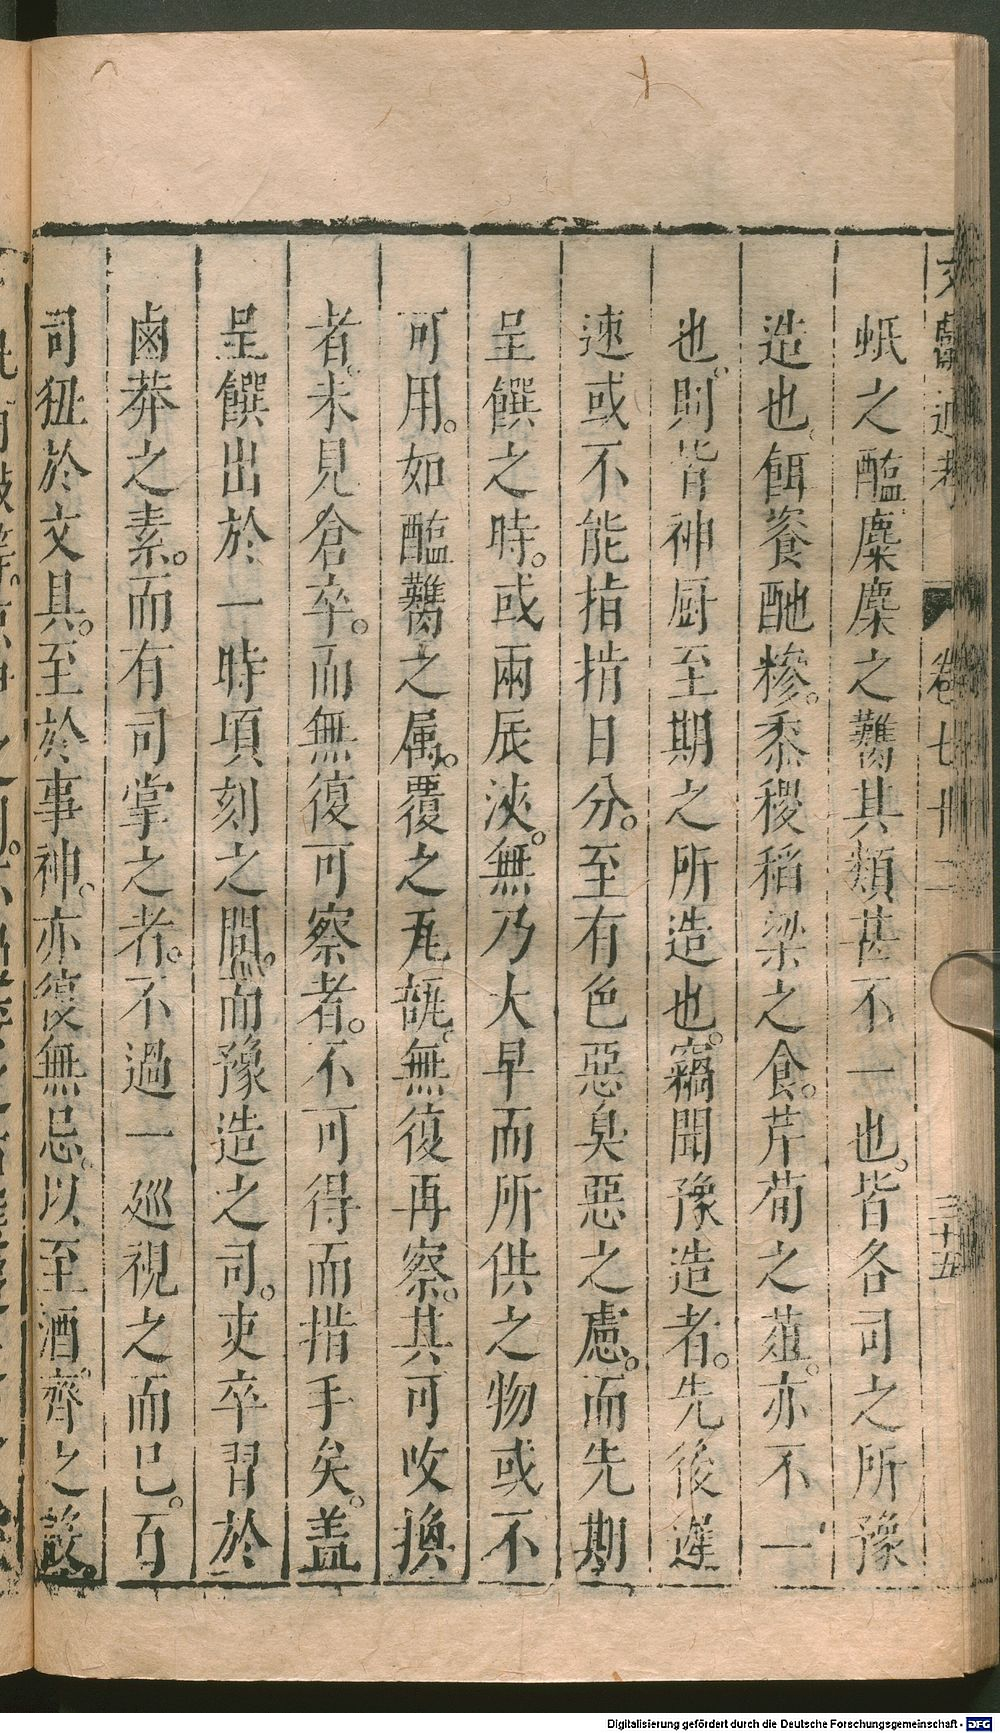 蚳之醢麋麋之臡其類甚不一也。皆各司之所豫
造也餌餈酏糝。黍稷稻粱之食。芹荀之葅。亦不一
也。則皆神厨至期之所造也。竊聞豫造者。先後遲
速或不能指揹日分。至有色惡臭惡之慮。而先期
呈饌之時。或兩辰浹。無乃大早而所供之物或不
可用。如醢臡之属。覆之瓦瓿。無復再察。其可收換
者。未見倉卒。而無復可察者。不可得而措手矣。盖
呈饌出於一時頃刻之間。而豫造之司。吏卒習於
鹵莽之素。而有司掌之者。不過一廵視之而已。百
司狃於文具。至於事神。亦復無忌。以至酒齊之設。
卷七十二
三十五
Digitalisierung gefördert durch die Deutsche Forschungsgemeinschaft - DFG